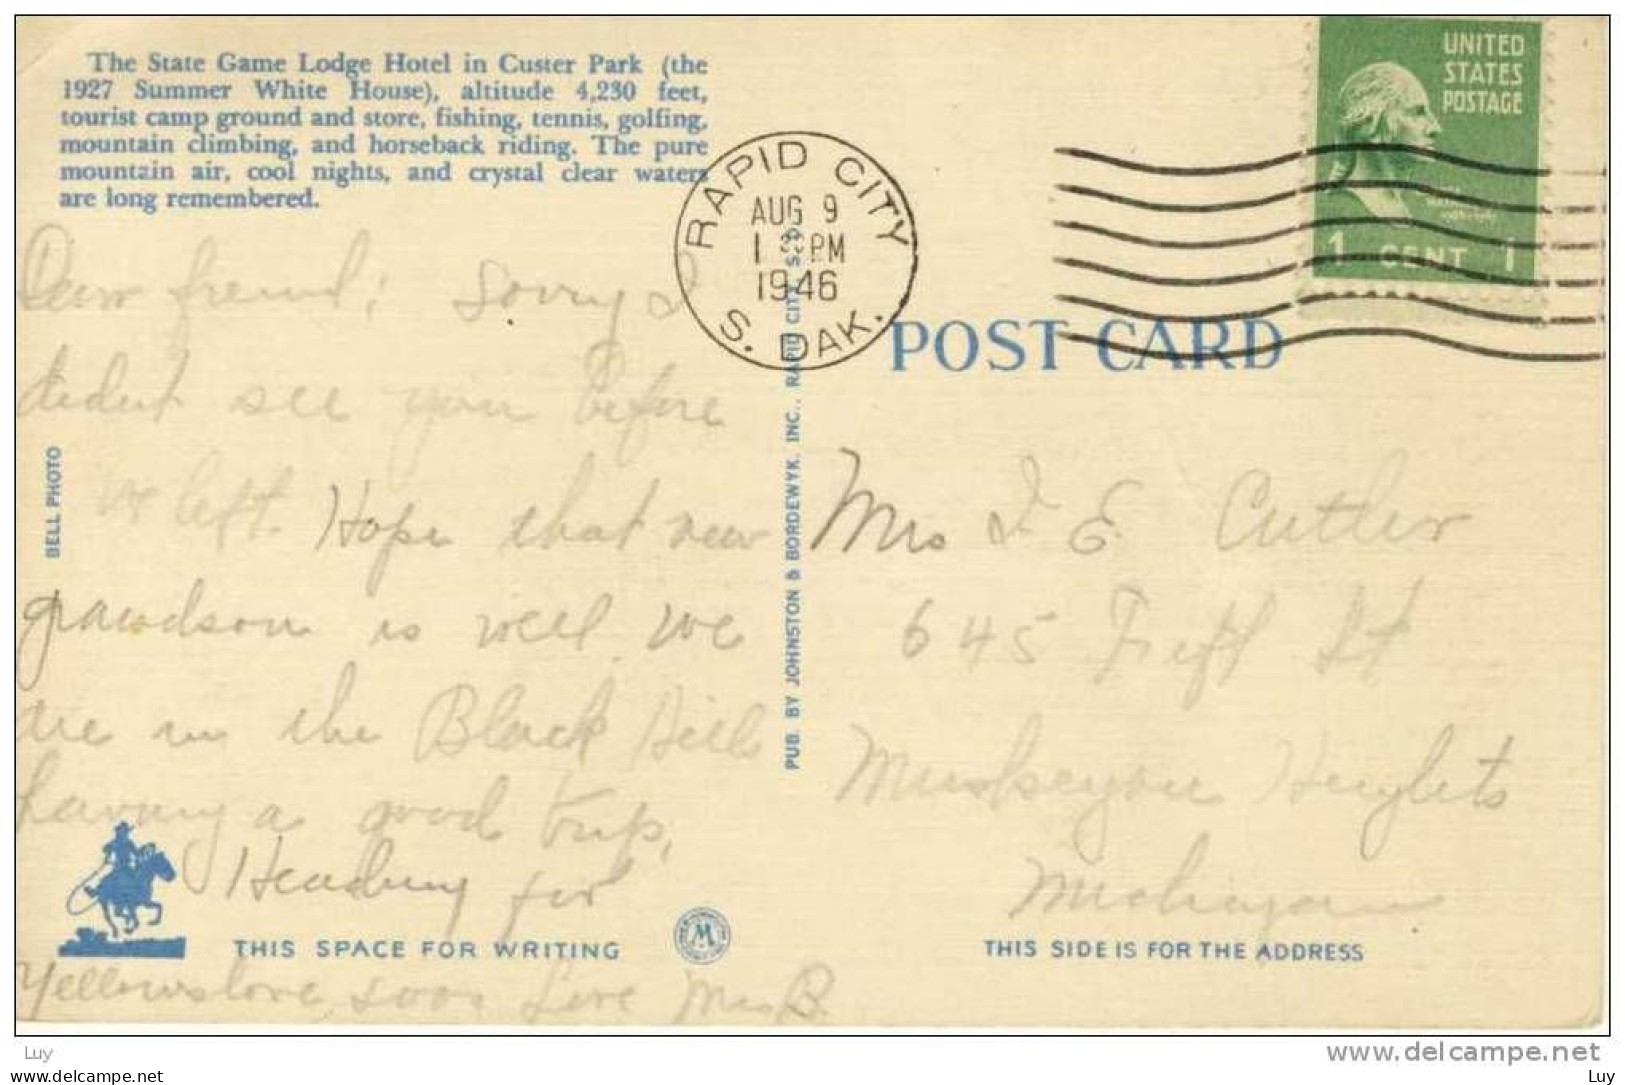 The State Game Lodge Hotel in Custer Park (the
1927 Summer White House), altitude 4,230 feet,
tourist camp ground and store, fishing, tennis, golfing,
mountain climbing, and horseback riding. The pure
mountain air, cool nights, and crystal clear waters
are long remembered.
Dear friend; Sorry I
didnt see you before
we left. Hope that new
grandson is well. We
are in the Black Hills
having a good trip,
Heading for
Yellowstone soon Love Mrs B.
BELL PHOTO
THIS SPACE FOR WRITING
M
PUB. BY JOHNSTON & BORDEWYK, INC., RAPID CITY, S. D.
RAPID CITY
AUG 9
1 PM
1946
S. DAK.
UNITED
STATES
POSTAGE
1 CENT 1
POST CARD
Mrs I E Cutler
645 Fifth St
Muskegon Heights
Michigan
THIS SIDE IS FOR THE ADDRESS
Luy
www.delcampe.net
Luy